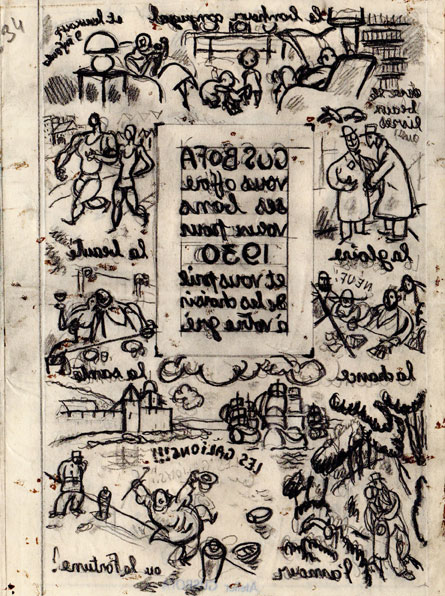 34
le bonheur conjugal
et beaucoup
d'enfants
avec de
beaux
livres
GUS BOFA
vous offre
ses bons
vœux pour
1930
et vous prie
de les choisir
à votre gré
la gloire
la beauté
NEUF!
la chance
la santé
LES GALIONS!!!
l'amour
ou la fortune!